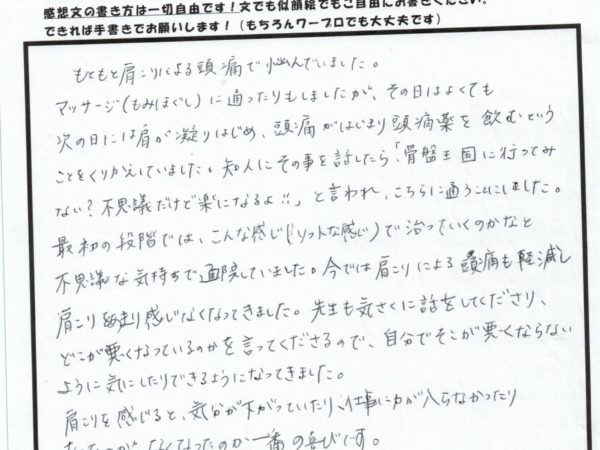 感想文の書き方は一切自由です！文でも似顔絵でもご自由にお書きください。
できれば手書きでお願いします！（もちろんワープロでも大丈夫です）
もともと肩こりによる頭痛で悩んでいました。
マッサージ(もみほぐし)に通ったりもしましたが、その日はよくても
次の日には肩が凝りはじめ、頭痛がはじまり頭痛薬を飲むという
ことをくりかえしていました。知人にその事を話したら「骨盤王国に行ってみ
ない？不思議だけど楽になるよ!!」と言われ、こちらに通うことにしました。
最初の段階では、こんな感じ(ソフトな感じ)で治っていくのかなと
不思議な気持ちで通院していました。今では肩こりによる頭痛も軽減し
肩こりあまり感じなくなってきました。先生も気さくに話をしてくださり、
どこが悪くなっているのかを言ってくださるので、自分でそこが悪くならない
ように気にしたりできるようになってきました。
肩こりを感じると、気分が下がっていたり、仕事に力が入らなかったり
なくなったのが一番の喜びです。